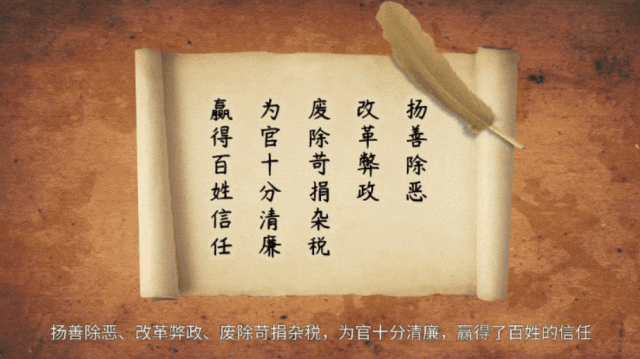 扬善除恶
改革弊政
废除苛捐杂税
为官十分清廉
赢得百姓信任
扬善除恶、改革弊政、废除苛捐杂税，为官十分清廉，赢得了百姓的信任